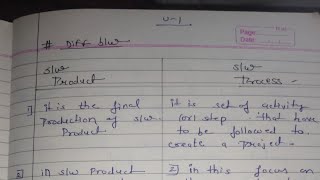 U-1
Page:
Date:
# Diff b/w
S/w Product
S/w Process -
1] It is the final production of S/w Product
it is set of activity (or) step that have to be followed to create a Project.
2] in S/w Product
2] in this focus on